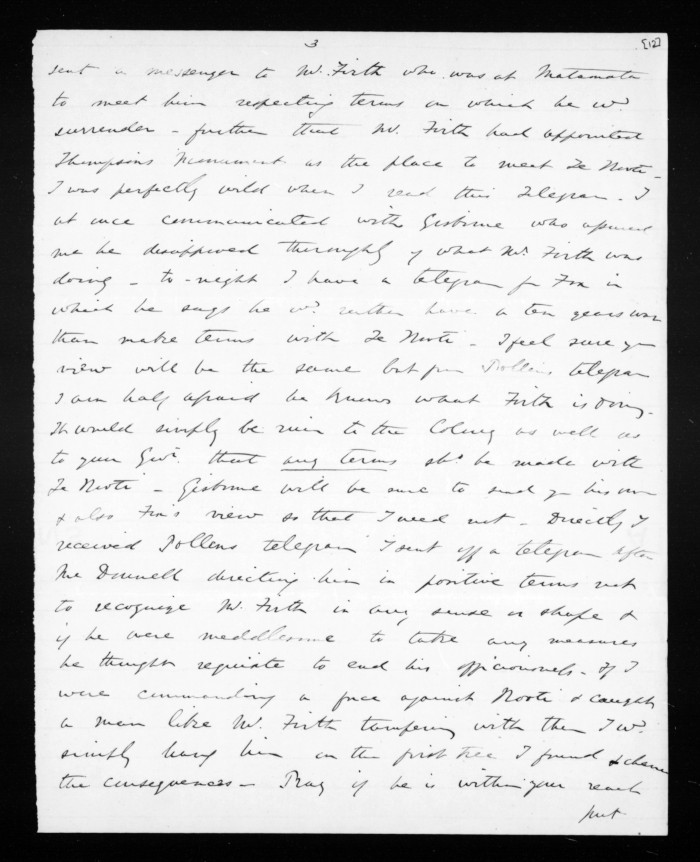 3
[12]
sent a messenger to Mr. Firth who was at Matamata
to meet him respecting terms on which he wd.
surrender - further that Mr. Firth had appointed
Thompson's Monument as the place to meet Te Kooti -
I was perfectly wild when I read this Telegram - I
at once communicated with Gisborne who assured
me he disapproved thoroughly of what Mr. Firth was
doing - to-night I have a telegram fm Fox in
which he says he wd. rather have a ten years war
than make terms with Te Kooti - I feel sure yr
view will be the same but from Pollens telegram
I am half afraid he knows what Firth is doing -
It would simply be ruin to the Colony as well as
to your Govt. that any terms shd. be made with
Te Kooti - Gisborne will be sure to send you his own
& also Fox's view so that I need not - Directly I
received Pollens telegram I sent off a telegram after
McDonnell directing him in positive terms not
to recognize Mr. Firth in any sense or shape &
if he were meddlesome to take any measures
he thought requisite to end his officiousness - If I
were commanding a force against Kooti & caught
a man like Mr. Firth tampering with them I wd.
simply hang him on the first tree I found & chance
the consequences - Pray if he is within your reach
put